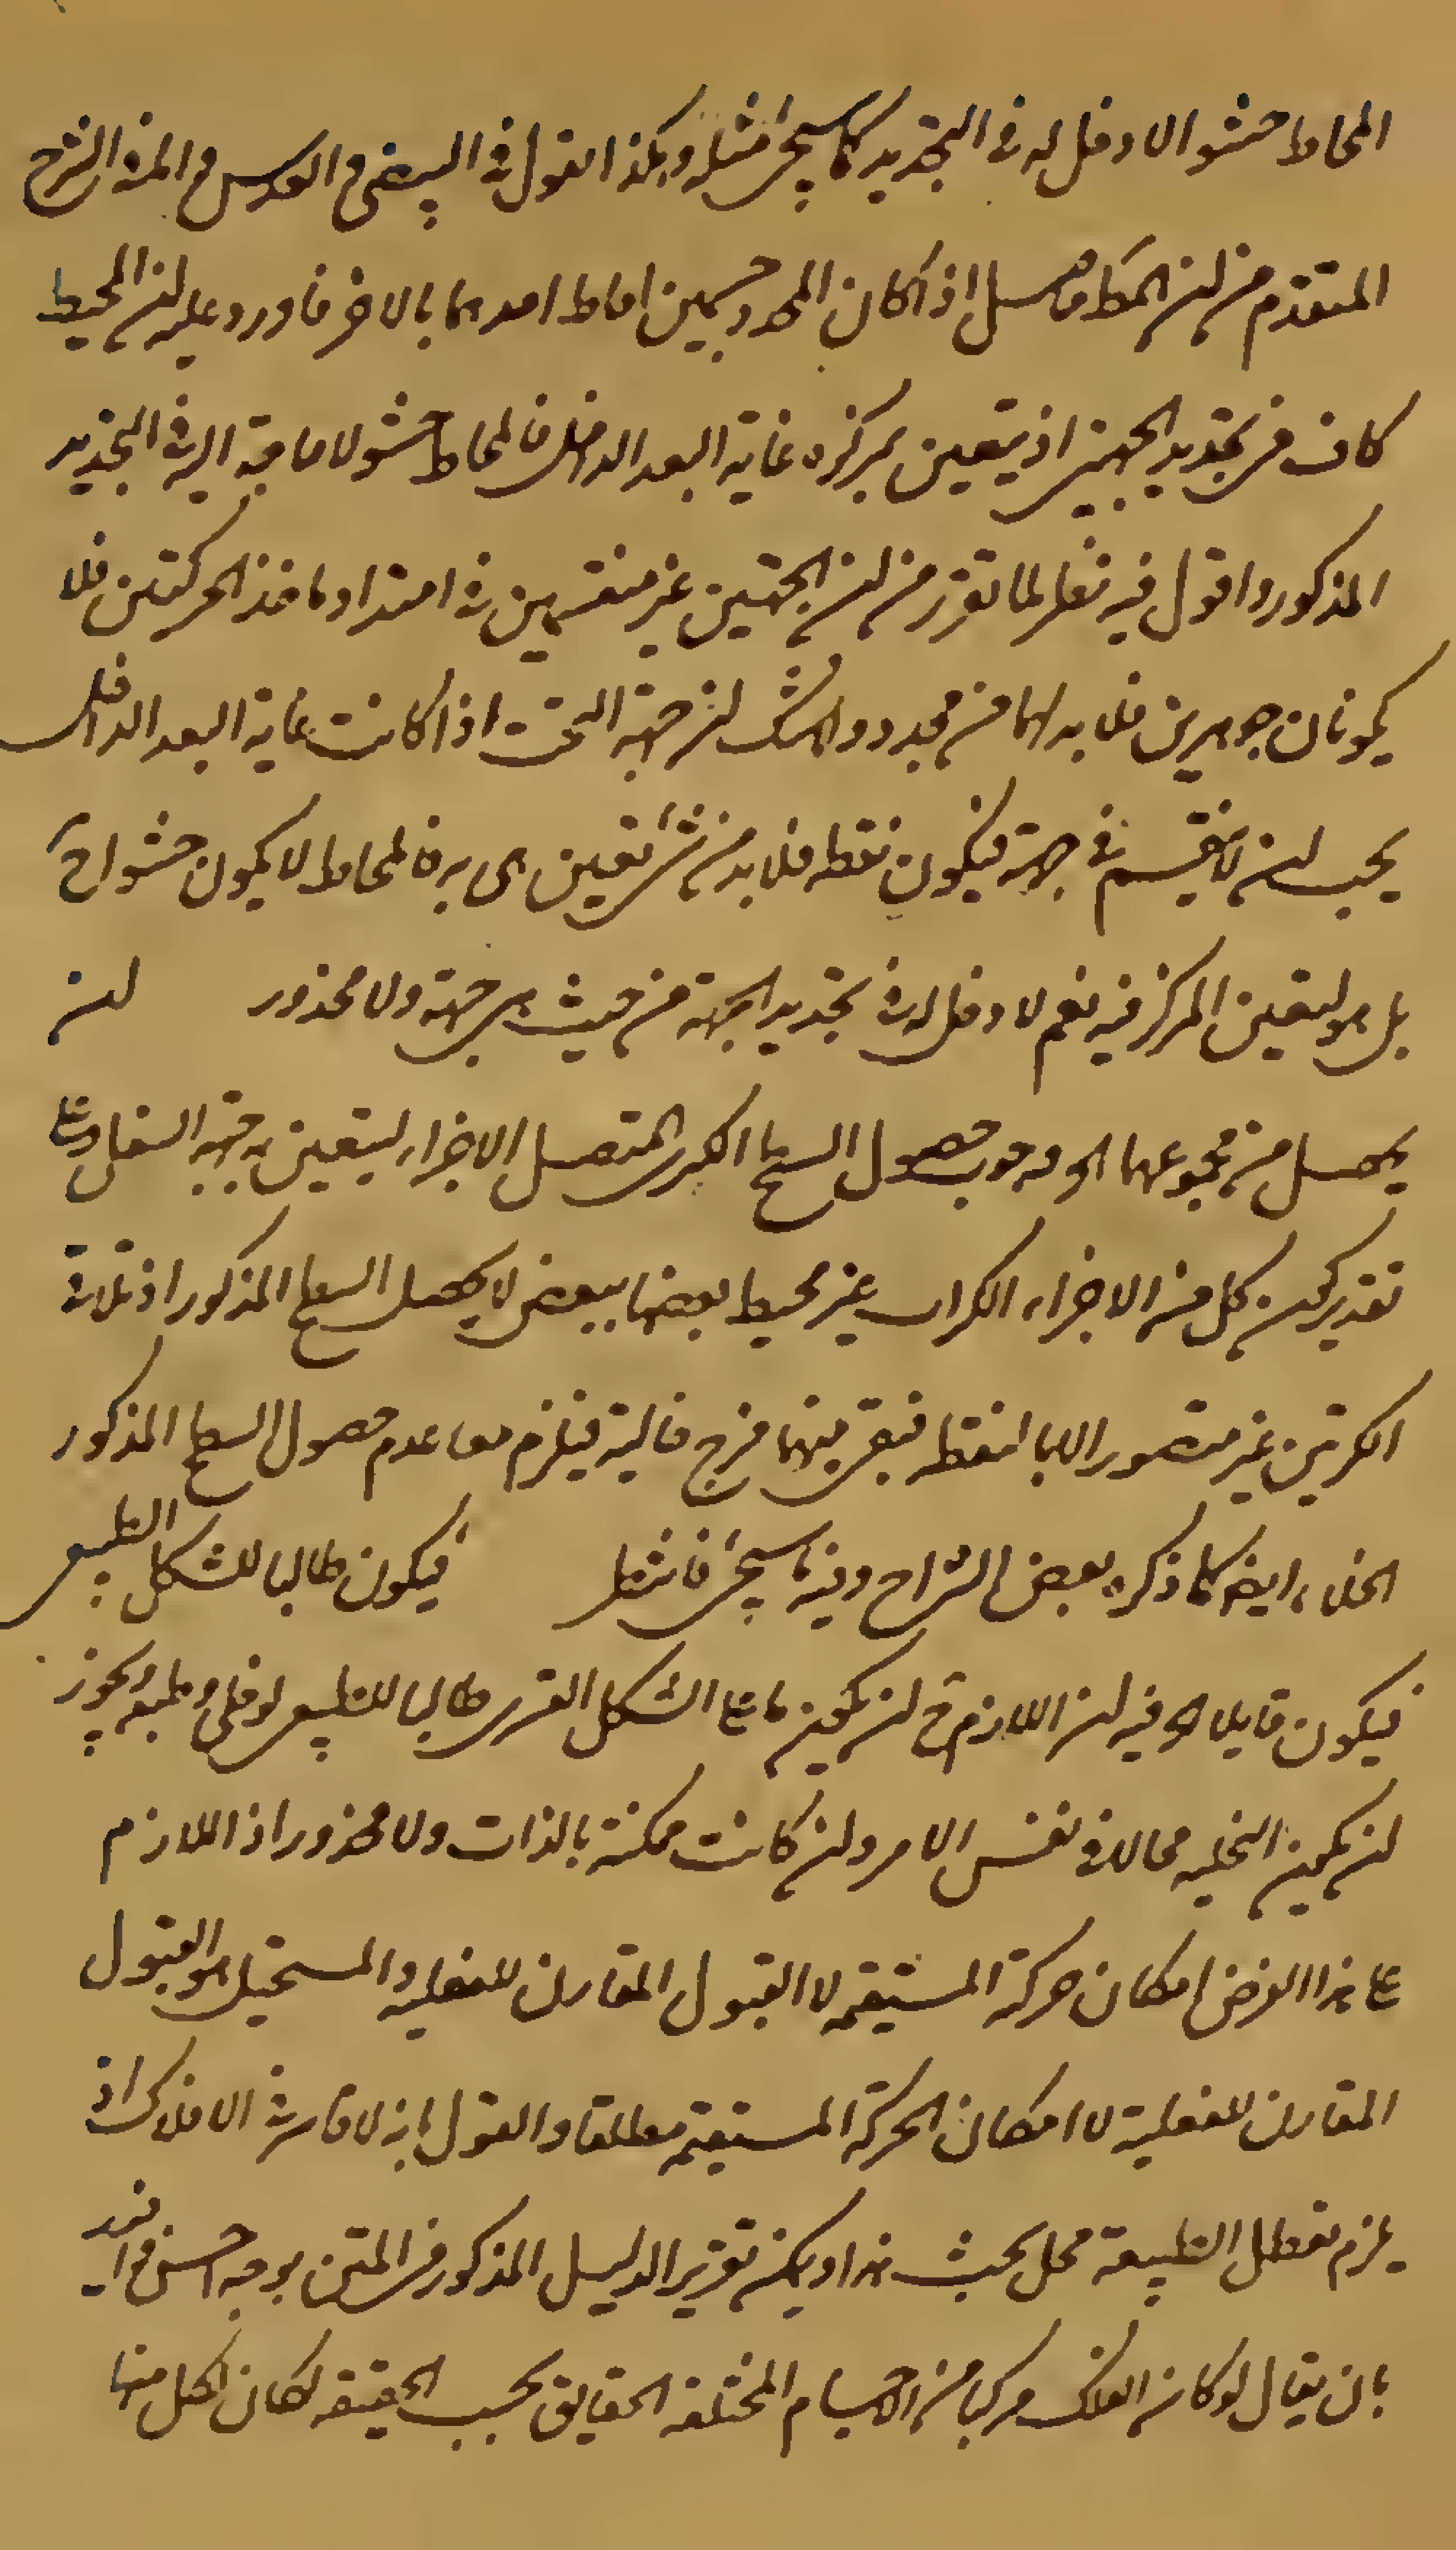 المحاط حشوا لا دخل له فى التحديد كما سيجئ مثله وهكذا القول فى البيضى و العدسى و الشرح
المتقدم من ان المحاط اذا كان المحدد جسمين احاط احدهما بالاخر فاورد عليه ان المحيط
كاف فى تحديد الجهتين اذ يتعين بمركزه غاية البعد الداخل فالمحاط حشو لا حاجة اليه فى التحديد
المذكور واقول فيه نظر لما تقرر من ان الجهتين غير منقسمين فى امتداد ماخذ الحركتين فلا
يكونان جوهرين فلا بد لهما من محدد ولا شك ان جهة التحت اذا كانت غاية البعد الداخل
يجب ان لا ينقسم فى جهة فيكون نقطه فلا بد من شئ تعين هى به فالمحاط لا يكون حشوا ح
بل هو ليتعين المركز فيه نعم لا دخل له فى تحديد الجهة من حيث هى جهة ولا محذور ان
يحصل من مجموعها الخ وجوب حصول السطح الكرى المتصل الاجزاء ليتعين به جهة السفل وعلى
تقدير كون كل من الاجزاء الكرات غير محيط بعضها ببعض لا يحصل السطح المذكور اذ تلاقى
الكرتين غير متصور الا بالنقطه فيبقى بينهما فرج خالية فيلزم مع عدم حصول السطح المذكور
الخلاء ايضا كما ذكره بعض الشراح وفيه ما سيجئ فانتظر فيكون طالبا للشكل الطبيعى
فيكون قابلا الخ فيه ان اللازم ح ان يكون ما على الشكل القسرى طالبا للطبيعى لو خلى وطبعه ويجوز
ان يكون التخليه محالا فى نفس الامر وان كانت ممكنة بالذات ولا محذور اذ اللازم
على هذا الفرض امكان حركة المستقيمه لا القبول المقارن للفعليه والمستحيل هو القبول
المقارن للفعلية لا امكان الحركة المستقيمه مطلقا والقول بانه لا قاسر فى الافلاك اذ
يلزم تعطل الطبيعة محل بحث هذا ويمكن تقرير الدليل المذكور فى المتن بوجه احسن و
بان يقال لو كان الفلك مركبا من الاجسام المختلفه الحقايق بحسب الحقيقه لكان لكل منها